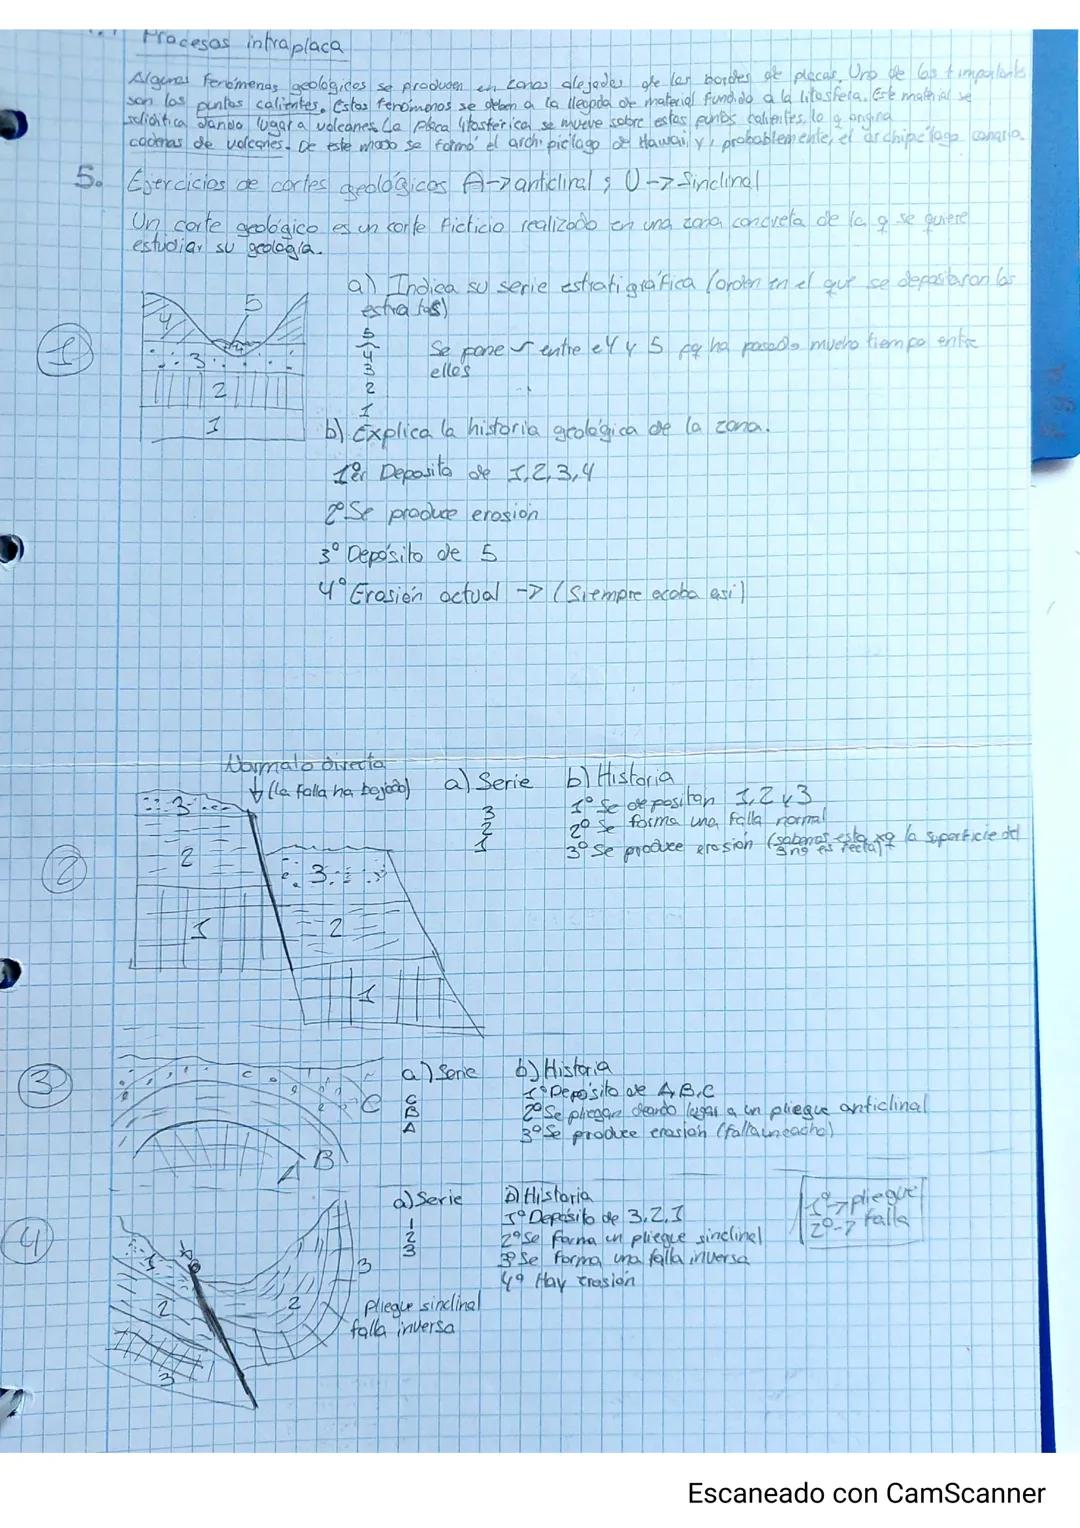 Procesos intraplaca
Algunos fenómenos geológicos se producen en zonas alejadas de los bordes de placas. Uno de los + importants
son los puntos calientes. Estos fenómenos se deben a la llegada de material fundido a la litosfera. Este material se
solidifica dando lugar a volcanes. La placa litosférica se mueve sobre estos puntos calientes, lo q origina
cadenas de volcanes. De este modo se formó el archipiélago de Hawai, y, probablemente, el archipélago canario.
5. Ejercicios de cortes geológicos A -> anticlinal ; U -> Sinclinal
Un corte geológico es un corte ficticio realizado en una zona concreta de la q se quiere
estudiar su geología.
1
4
5
3
2
1
a) Indica su serie estratigráfica (orden en el que se depositaron los
estratos)
5
4
3
2
1
Se pone entre el 4 y 5 pq ha pasado mucho tiempo entre
ellos
b) Explica la historia geológica de la zona.
1º Deposito de 1, 2, 3, 4
2º Se produce erosión
3º Depósito de 5
4º Erosión actual -> (Siempre acaba así)
2
Normal o directa
(la falla ha bajado)
3
2
1
3
2
1
a) Serie
3
2
1
b) Historia
1º Se depositan 1, 2 y 3
2º Se forma una falla normal
3º Se produce erosión (sabemos esto xq la superficie del
3 no es recta)
3
C
B
A
a) Serie
C
B
A
b) Historia
1º Depósito de A, B, C
2º Se pliegan dando lugar a un pliegue anticlinal
3º Se produce erosión (falta un cacho)
4
1
2
3
2
3
pliegue sinclinal
falla inversa
a) Serie
1
2
3
b) Historia
1º Depósito de 3, 2, 1
2º Se forma un pliegue sinclinal
3º Se forma una falla inversa
4º Hay erosión
1º -> pliegue
2º -> falla
Escaneado con CamScanner